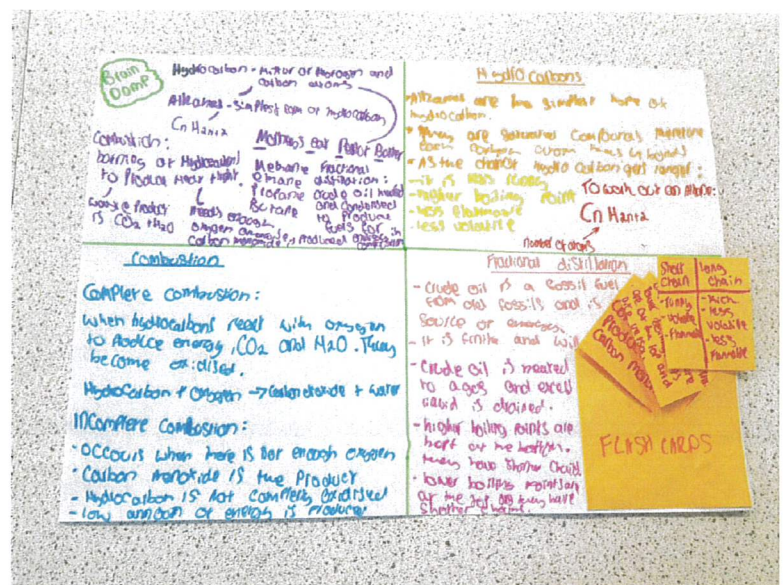 Brain
Dump
Hydrocarbon - mixture of hydrogen and
carbon atoms
Alkanes - simplest form of hydrocarbon
CnH2n+2
Mothers eat Peanut Butter
Combustion:
burning of Hydrocarbons
to Produce Heat + light.
is CO2 + H2O
Needs enough
oxygen
carbon monoxide is produced
Methane
ethane
Propane
Butane
Fractional
distillation:
crude oil heated
and condensed
to produce
fuels
Hydrocarbons
- Alkanes are the simplest form of
hydrocarbon.
- They are saturated compounds
- As the chain of Hydrocarbon gets longer:
- it is less runny
- higher boiling point
- less flammable
- less volatile
To work out an Alkane:
CnH2n+2
number of atoms
Combustion
Complete Combustion:
when hydrocarbons react with oxygen
to Produce energy, CO2 and H2O. They
become oxidised.
Hydrocarbon + Oxygen → carbon dioxide + water
Incomplete Combustion:
- occurs when there is not enough oxygen
- Carbon Monoxide is the Product
- Hydrocarbon is not completely oxidised
- low amount of energy is produced
Fractional distillation
- crude oil is a fossil fuel
from old fossils and is
source of
- it is finite and will
- Crude oil is heated
to a gas and excess
liquid is drained.
- higher boiling points are
kept at the bottom.
they have
- lower boiling
at the top as they have
shorter chains.
Short
chain
- runny
- volatile
- flammable
Long
chain
- thick
- less
volatile
- less
flammable
Produced
carbon mono
FLASH CARDS